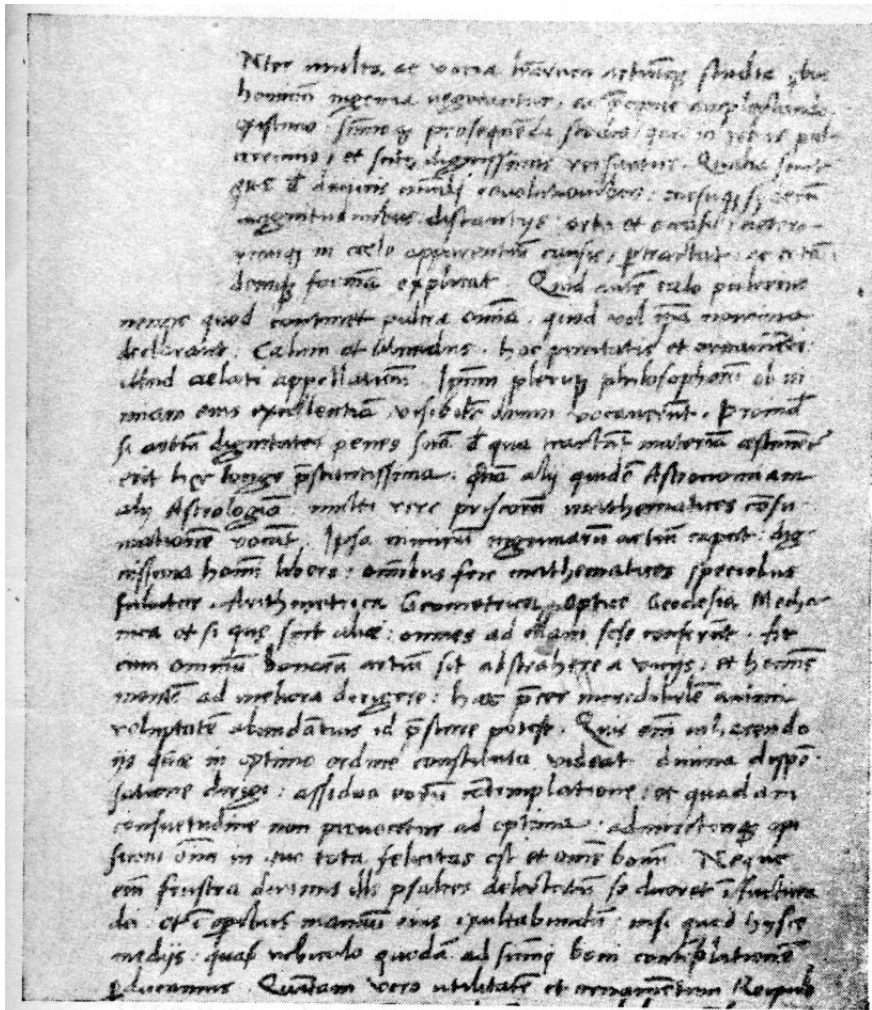 Nter multa, ac varia lr̄arum artiumq; studia, qbus
hominū ingenia vegetantur, ea p̄cipue amplectenda
existimo: sūmoq; prosequēda studio: que in rebus pul
cerrimis, et scitu dignissimis versantur. Qualia sunt
que de divinis mūdi revolutionibus: cursuq; syderū
magnitudinibus: distantijs: ortu et occasu: cetero
rumq; in cælo apparentiū causis, ptractāt: ac totā
deniq; formā explicāt. Quid autē cælo pulcrius
nempe quod continet pulcra omīa. quod vel ip̄a nomina
declarant: Cælum et Mundus. hoc puritatis et ornamēti:
illud cælati appellatione. Ipsum pleriq; philosophorū ob ni
miam eius excellentiā, visibilē deum vocaverūt. Proinde
si artiū dignitates penes suā de qua tractāt materiā æstimēt
erit hęc longe p̄stantissima. quā alij quidē Astronomiam
alij Astrologiā: multi vero priscorū mathematices cōsu
mationē vocāt. Ipsa nimirū ingenuarū artiū caput: dig
nissima homī libero: omnibus fere mathematices speciebus
fulcitur. Arithmetica Geometrica, Optice Geodesia Mecha
nica et si quę sint aliæ: omnes ad illam sese conferūt. At
cum omniū bonarū artiū sit abstrahere a vitijs: et homīs
mentē ad meliora dirigere: hæc p̄ter incredibilē animi
voluptatē abundātius id p̄stare potest. Quis em̄ inhærendo
ijs quæ in optimo ordine constituta videat divina dispē
satione dirigi: assidua eorū cōtemplatione: et quadam
consuetudine non provocetur ad optima: admireturq; opi
ficem om̄m in quo tota felicitas est et omē bonū. Neque
em̄ frustra divinus ille psaltes delectatū se diceret ī factura
dei: et ī opibus manuū eius exultabundū: nisi quod hysce
medijs: quasi vehiculo quodā ad sūmi boni contēplationē
pducamur. Quātam vero utilitatē et ornamētum Reipub